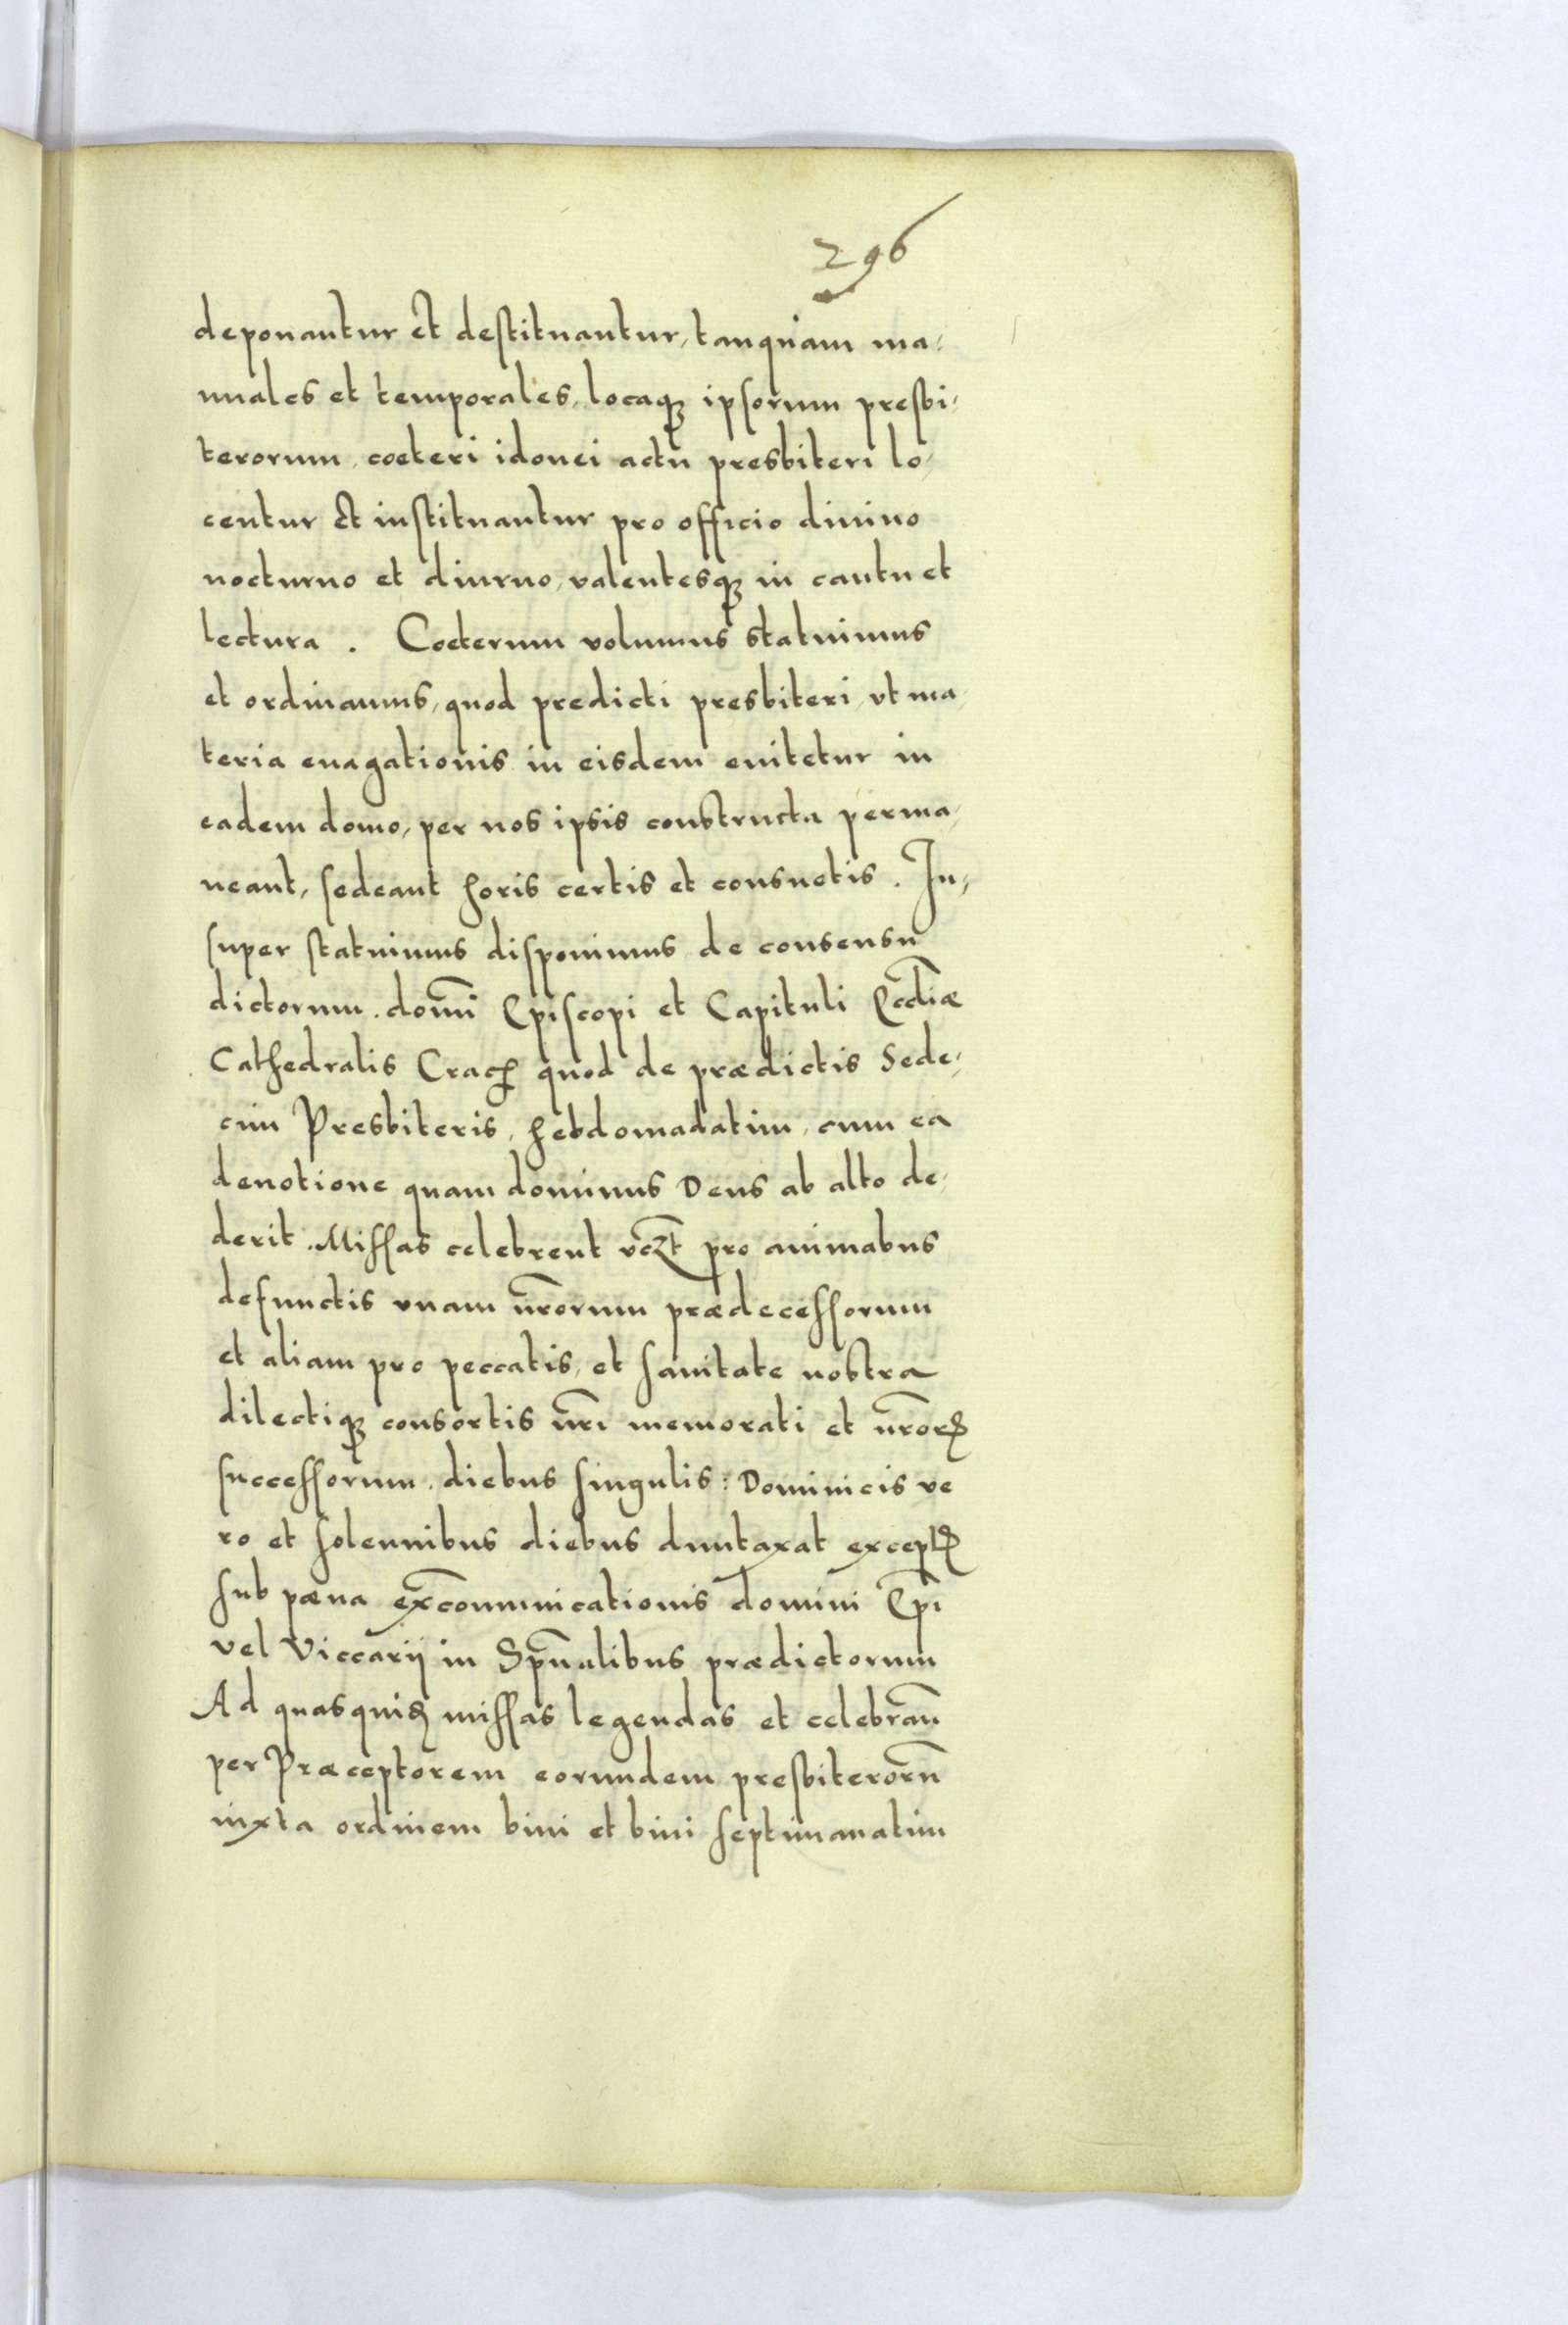 296
deponantur et destituantur, tanquam ma-
nuales et temporales, locaq₃ ipsorum presbi-
terorum, coeteri idonei actu presbiteri lo-
centur et instituantur pro officio diuino
nocturno et diurno, valentesq₃ in cantu et
lectura. Coeterum volumus statuimus
et ordinamus, quod predicti presbiteri, vt ma-
teria euagationis in eisdem euitetur in
eadem domo, per nos ipsis constructa perma-
neant, sedeant horis certis et consuetis. In-
super statuimus disponimus de consensu
dictorum. domi͞ Episcopi et Capituli Eccl͞iæ
Cathedralis Crac̄ quod de prædictis Sede-
cim Presbiteris, hebdomadatim, cum ea
deuotione quam dominus Deus ab alto de-
derit. Missas celebrent vcz͞t pro animabus
defunctis vnam nr͞orum prædecessorum
et aliam pro peccatis, et sanitate nostra
dilectiq₃ consortis nr͞i memorati et nr͞orꝝ
successorum. diebus singulis: Dominicis ve
ro et solennibus diebus duntaxat exceptꝭ
sub pæna exc͞ommunicationis domini Ep͞i
vel Viccarij in Sp͞ualibus prædictorum
Ad quasquidꝫ missas legendas et celebran͞
per Præceptorem eorundem presbiteroru͞
iuxta ordinem bini et bini septimanatim